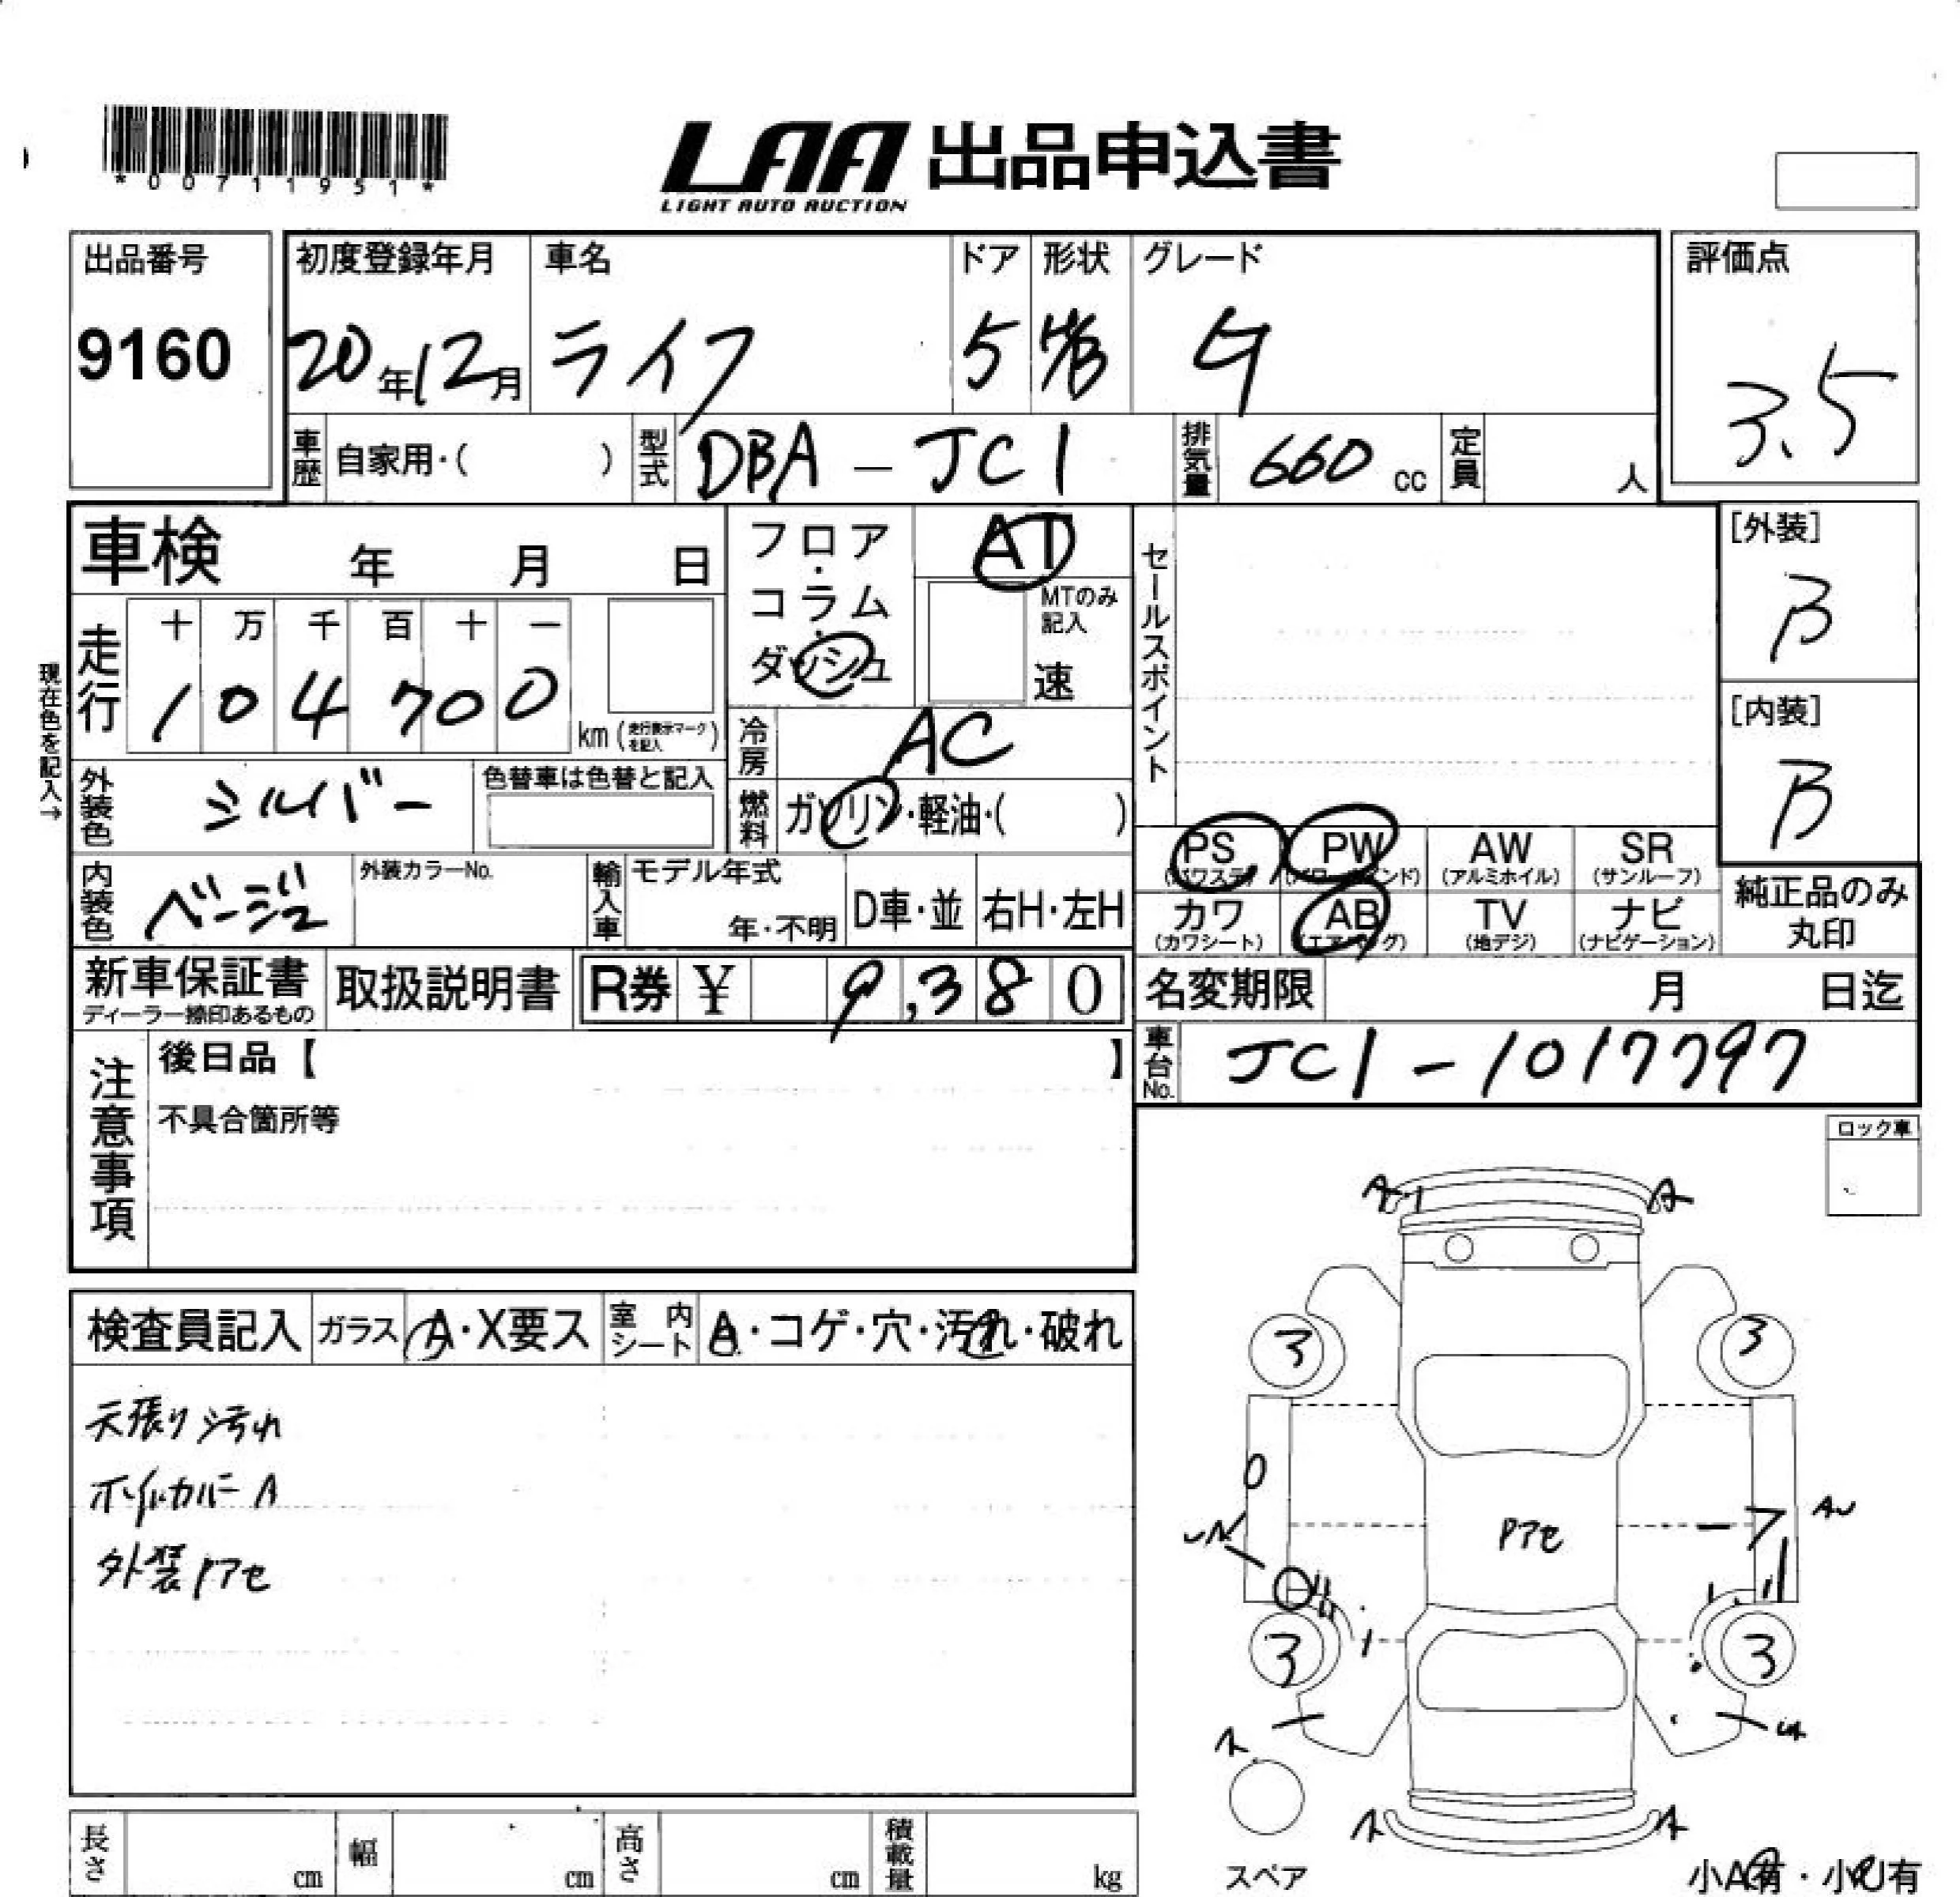 *00711951*
LAA 出品申込書
LIGHT AUTO AUCTION
出品番号
9160
初度登録年月
20年12月
車名
ライフ
ドア
5
形状
グレード
G
評価点
3.5
車歴 自家用・( )
型式 DBA-JC1
排気量 660 cc
定員 人
車検 年 月 日
フロア・コラム・ダッシュ
AT
MTのみ記入
速
セールスポイント
[外装]
B
[内装]
B
現在色を記入→
走行
十 万 千 百 十 一
1 0 4 7 0 0
km (走行表示マークを記入)
冷房 AC
外装色 シルバー
色替車は色替と記入
燃料 ガソリン・軽油・( )
内装色 ベージュ
外装カラーNo.
輸入車
モデル年式
年・不明
D車・並
右H・左H
PS (パワステ)
PW (パワーウインド)
AW (アルミホイル)
SR (サンルーフ)
カワ (カワシート)
AB (エアバッグ)
TV (地デジ)
ナビ (ナビゲーション)
純正品のみ
丸印
新車保証書
ディーラー捺印あるもの
取扱説明書
R券 ¥ 9,380
名変期限 月 日迄
車台No. JC1-1017797
注意事項
後日品【 】
不具合箇所等
ロック車
検査員記入
ガラス A・X要ス
室内シート A・コゲ・穴・汚れ・破れ
天張り汚れ
ホイルカバーA
外装Pアセ
A
A
3
3
Pアセ
3
3
スペア
小A有・小U有
長さ cm
幅 cm
高さ cm
積載量 kg